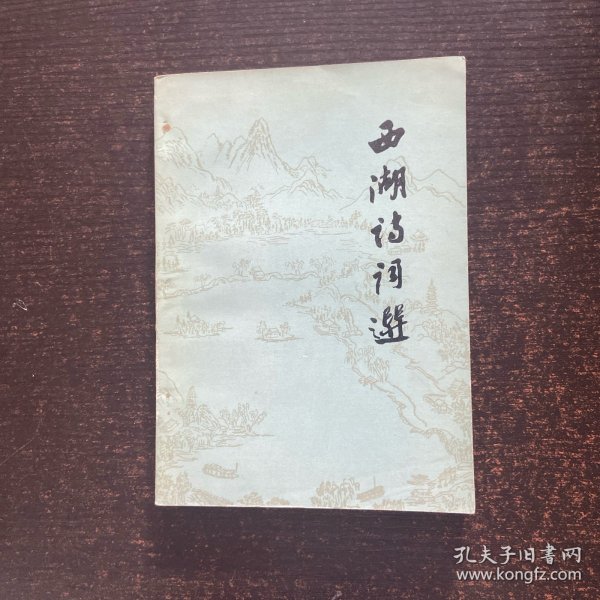 西湖诗词選
孔夫子旧書网
www.kongfz.com